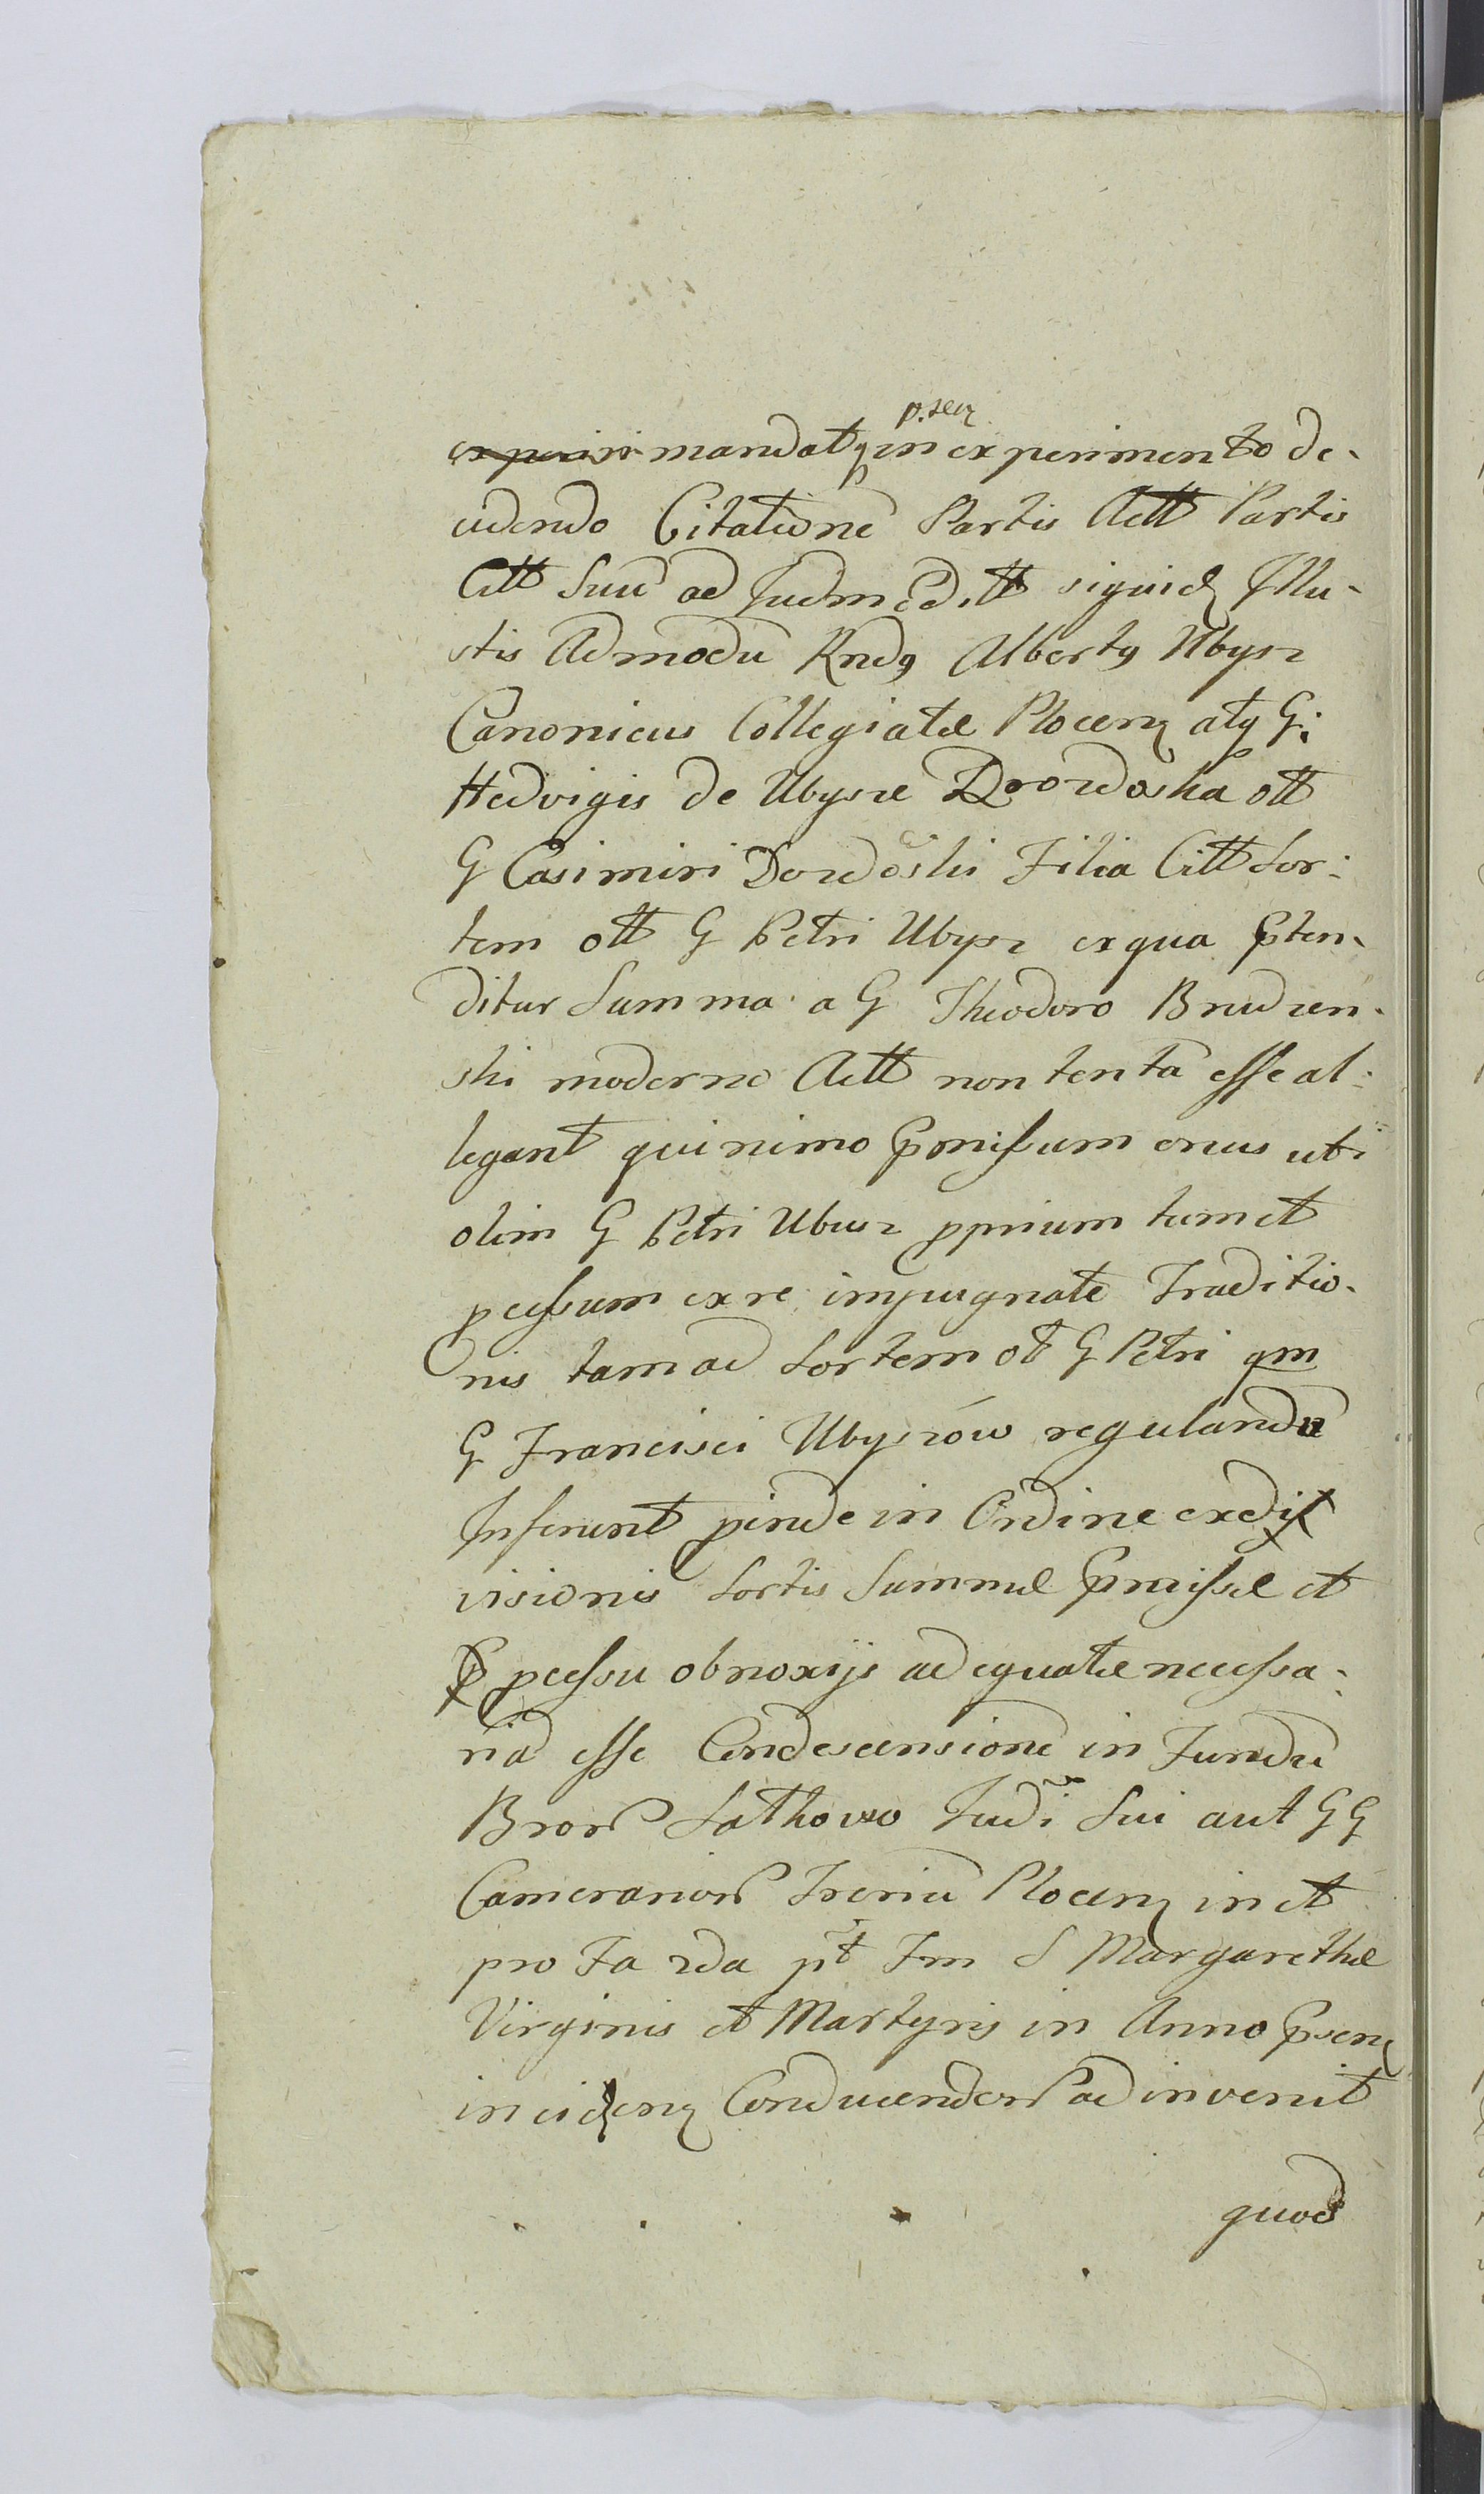 p. sen
experiri mandatq in experimento de-
cidendo Citatione Partis Actt Partis
Citt Suu ad Judm edtt siquid Illu-
stis Admodu Rndq Albertq Ubysz
Canonicus Collegiatæ Plocen atq G:
Hedvigis de Ubysze Drozdoska ott
G Casimiri Dordoski Filia Citt Sor-
tem ott G Petri Ubysz ex qua Pten-
ditur Summa a G Theodoro Brudzen-
ski moderno Actt non tenta esse al-
legant quinimo Pmissum onus uti
olim G Petri Ubusz pprium tum et
pcessum ex re impugnate Traditio-
nis tam ad Sortem ot G Petri qm
G Francisci Ubyszów regulandu
Inferunt pinde in Ordine exdi
visionis Sortis Summæ Pmissæ et
pcessu obnoxijs adequatæ necessa-
ria esse Condescensione in Fundu
Bonor Lathowo Judi Sui aut GG
Camerarior Trenu Plocen in et
pro Fa 2da pt Fm S Margarethæ
Virginis et Martyris in Anno Psen
inciden Conducendor adinvenit
quod